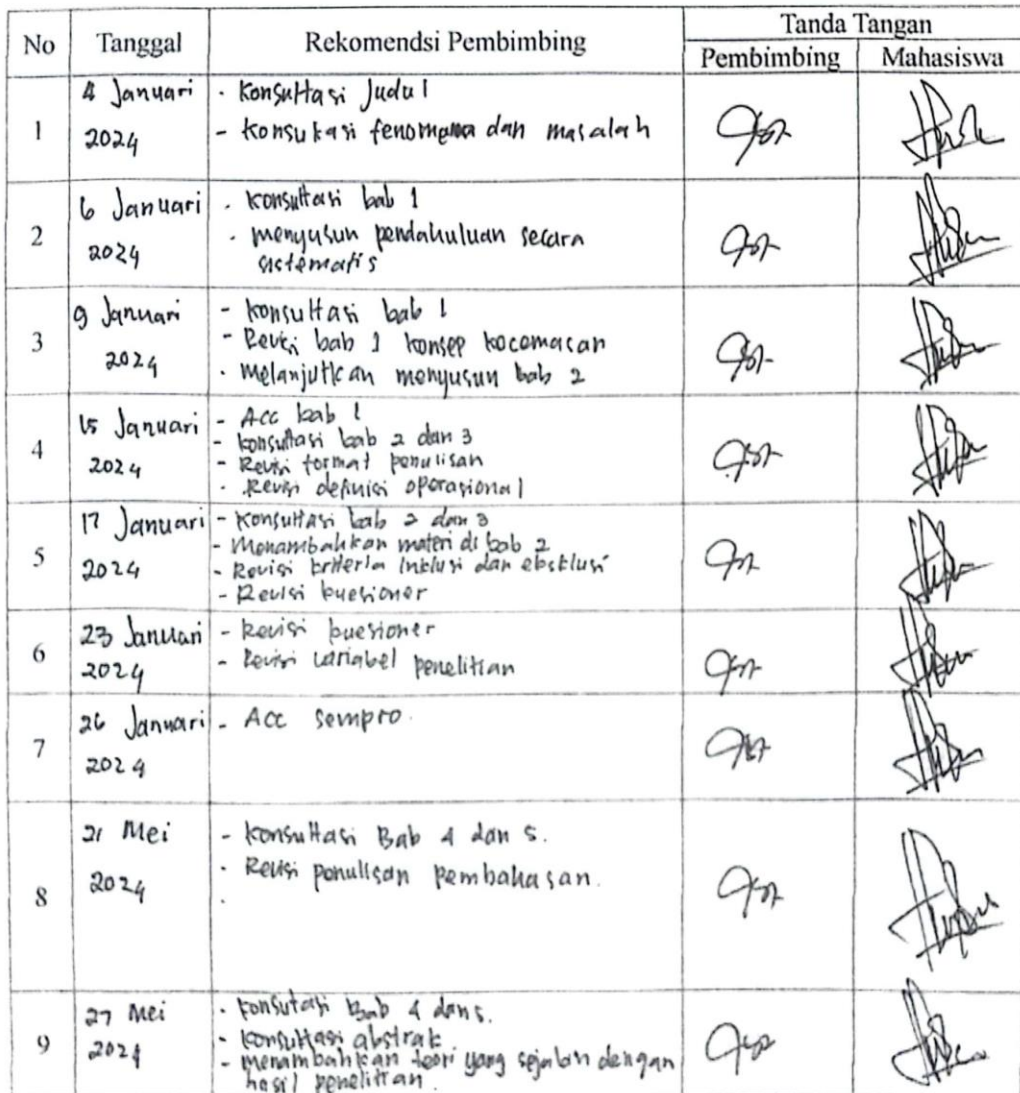 No Tanggal Rekomendsi Pembimbing Tanda Tangan
Pembimbing Mahasiswa
1 4 Januari 2024
- Konsultasi Judul
- Konsukasi fenomena dan masalah
2 6 Januari 2024
- Konsultasi bab 1
- menyusun pendahuluan secara
sistematis
3 9 Januari 2024
- konsultasi bab 1
- Revisi bab 1 konsep kecemasan
- Melanjutkan menyusun bab 2
4 15 Januari 2024
- Acc bab 1
- konsultasi bab 2 dan 3
- Revisi format penulisan
- Revisi definisi operasional
5 17 Januari 2024
- Konsultasi bab 2 dan 3
- Menambahkan materi di bab 2
- Revisi kriteria inklusi dan eksklusi
- Revisi kuesioner
6 23 Januari 2024
- Revisi kuesioner
- Revisi variabel penelitian
7 26 Januari 2024
- Acc sempro.
8 21 Mei 2024
- konsultasi Bab 4 dan 5.
- Revisi penulisan pembahasan.
9 27 Mei 2024
- konsutasi Bab 4 dan 5.
- konsultasi abstrak
- menambahkan teori yang sejalan dengan
hasil penelitian.